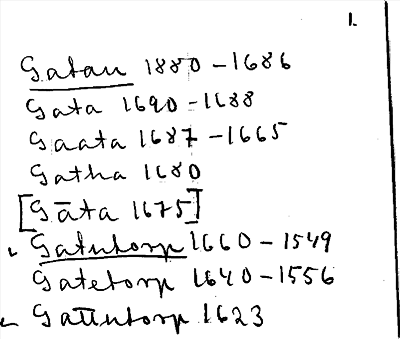 1.
Gatan 1880-1686
Gata 1690-1688
Gaata 1687-1665
Gatha 1680
[Gāta 1675]
Gatutorp 1660-1549
Gatetorp 1640-1556
Gattutorp 1623